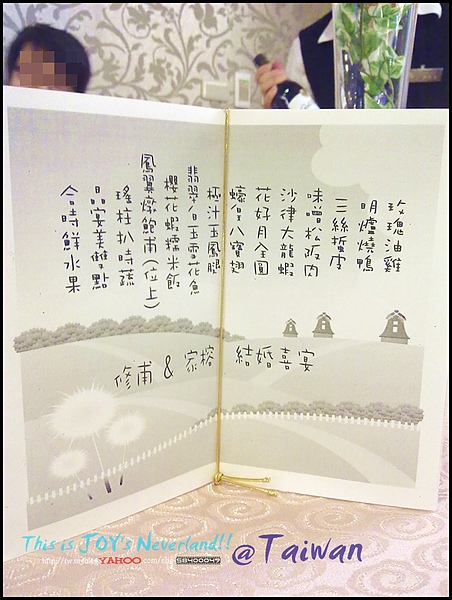 玫瑰油雞
明爐燒鴨
三絲蜇皮
味噌松阪肉
沙律大龍蝦
花好月全圓
蠔皇八寶翅
極汁玉鳳腿
翡翠白玉雪花魚
櫻花蝦糯米飯
鳳翼燉鮑甫(位上)
瑤柱扒時蔬
晶宴美雙點
合時鮮水果
修甫 & 家榕 結婚喜宴
This is JOY's Neverland!! @Taiwan